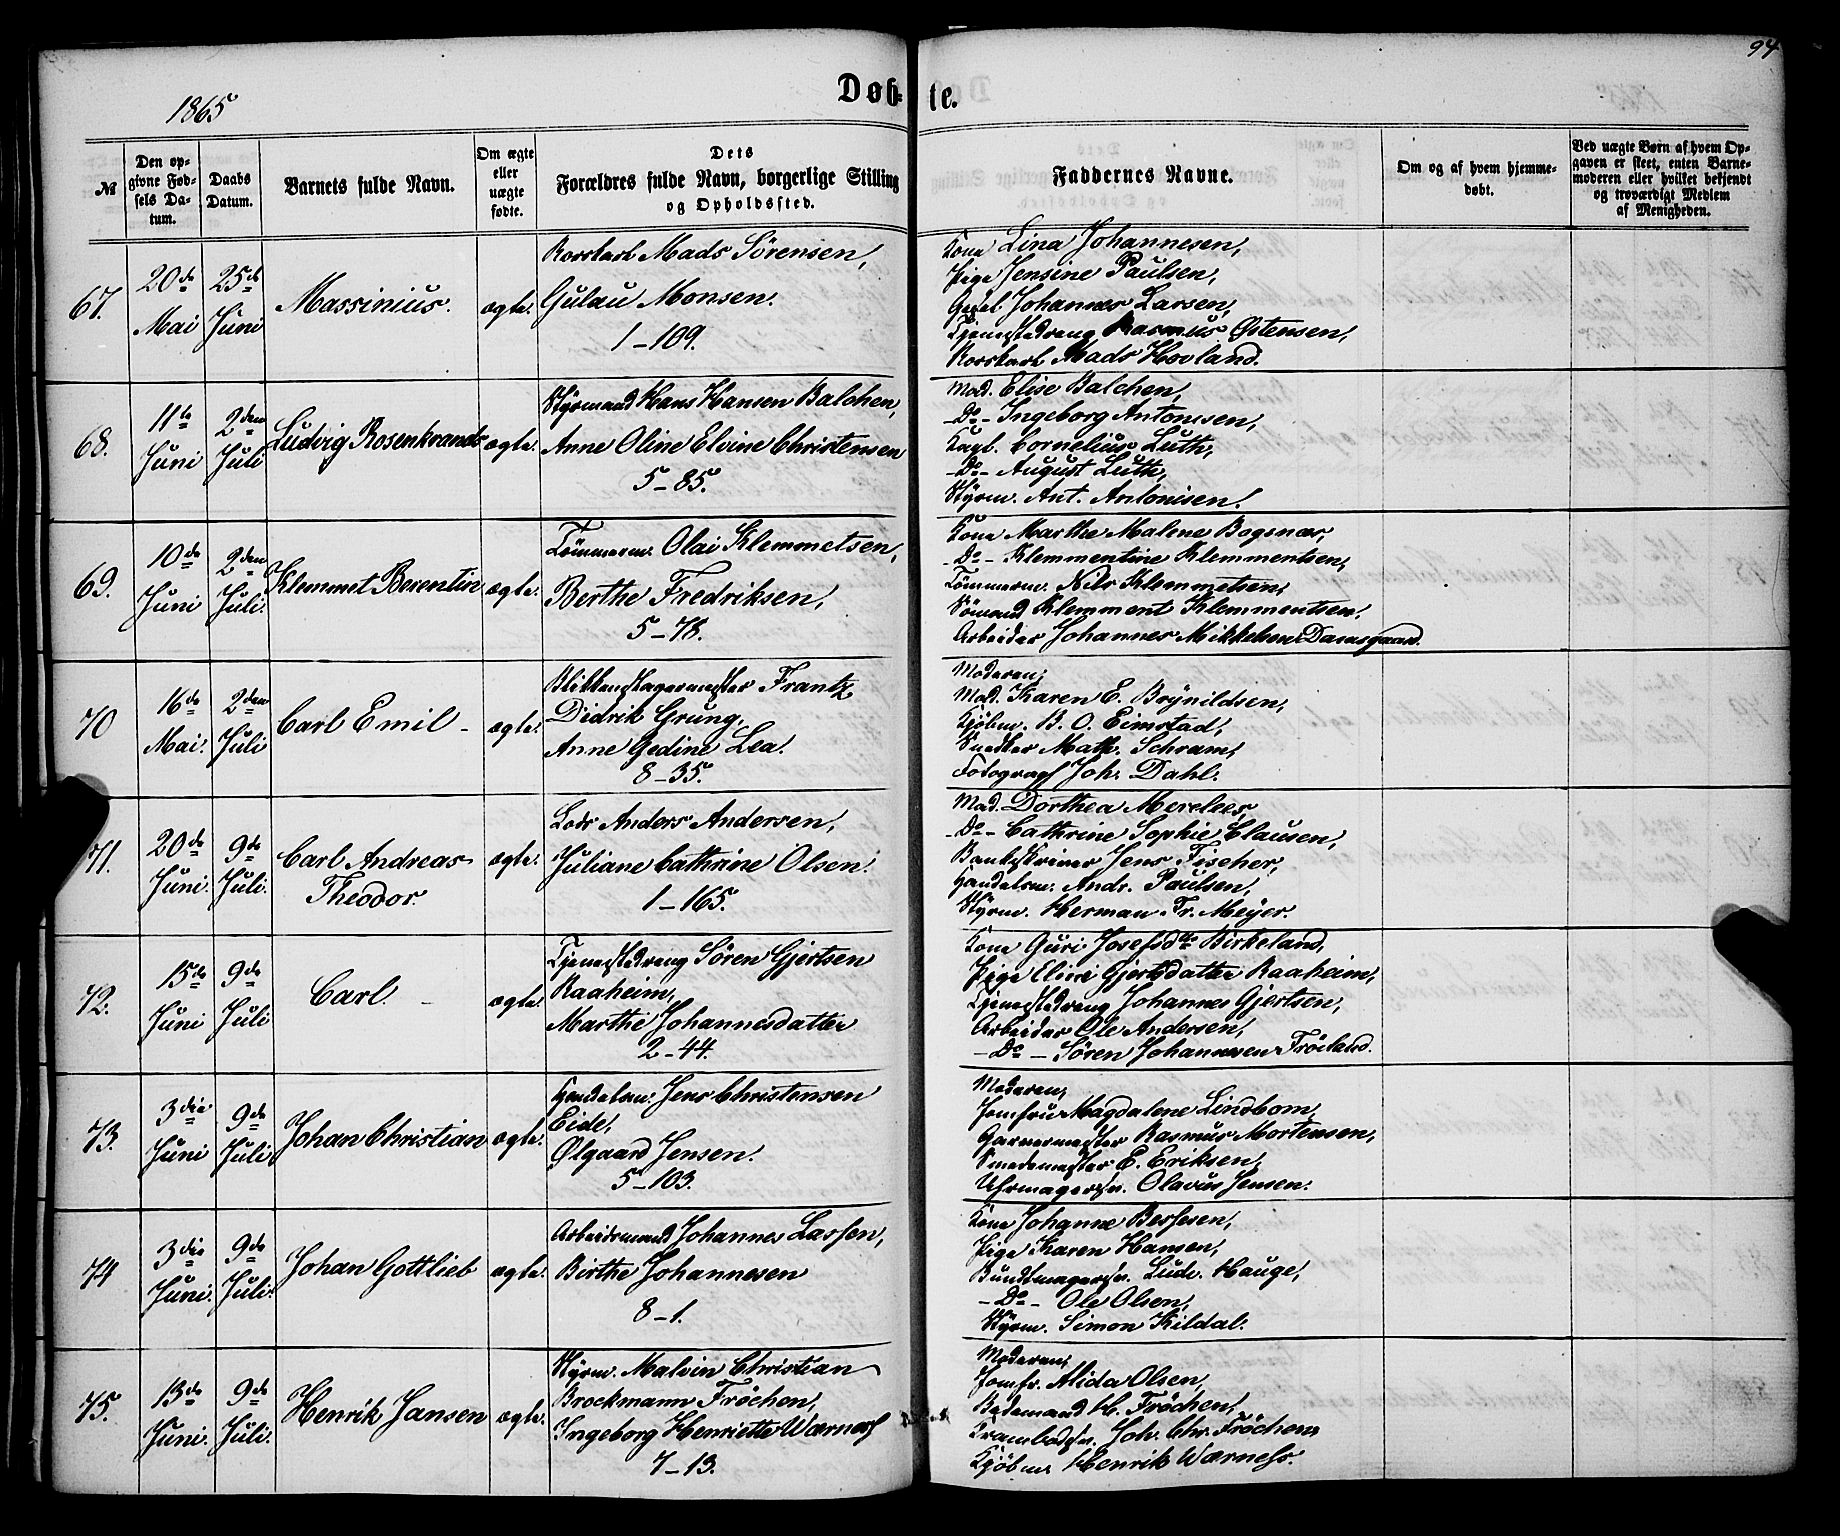 94
1865
Døbte.
№
Den opgivne Fødsels Datum.
Daabs Datum.
Barnets fulde Navn.
Om ægte eller uægte fødte.
Dets Forældres fulde Navn, borgerlige Stilling og Opholdssted.
Faddernes Navne.
Om og af hvem hjemmedøbt.
Ved uægte Børn af hvem Opgaven er skeet, enten Barnemoderen eller hvilket bekjendt og troværdigt Medlem af Menigheden.
67.
20de Mai
25de Juni
Massinius.
ægte.
Rorskarl Mads Sørensen,
Gulau Monsen.
1-109.
Kone Lina Johannesen,
Pige Jensine Paulsen,
Gesel Johannes Larsen,
Tjenestedreng Rasmus Østensen,
Rorskarl Mads Hovland.
68.
11te Juni
2den Juli
Ludvig Rosenkrands
ægte.
Styrmand Hans Hansen Balchen,
Anne Oline Elvine Christensen
5-85.
Mad. Elise Balchen,
-Do- Ingeborg Antonisen,
Cornelius Luth,
-Do- August Luth,
Styrm. Ant. Antonisen.
69.
10de Juni
2den Juli.
Klemmet Berentin
ægte.
Tømmerm. Olai Klemmetsen,
Berthe Fredriksen,
5-78.
Kone Marthe Malene Bogsnæs,
-Do- Klemmentine Klemmentsen,
Tømmerm. Nils Klemmetsen,
Sømand Klemment Klemmentsen,
Arbeider Johannes Mikkelsen Damsgaard.
70
16de Mai.
2den Juli
Carl Emil -
ægte.
Blikkenslagermester Frantz
Didrik Grung,
Anne Gedine Lea.
8-35.
Moderen,
Mad. Karen E. Brynildsen,
Kjøbm. B. O. Eimstad,
Snedker Math. Schram,
Fotograph Joh. Dahl.
71.
20de Juni.
9de Juli.
Carl Andreas
Theodor.
ægte.
Lods Anders Andersen,
Juliane Cathrine Olsen.
1-165.
Mad. Dorthea Merelees,
-Do- Cathrine Sophie Clausen,
Bankskriver Jens Fischer,
Handelsm. Andr. Paulsen,
Styrm. Herman Fr. Meyer.
72.
15de Juni
9de Juli
Carl. -
ægte.
Tjenestedreng Søren Gjertsen
Raaheim,
Marthe Johannesdatter
2-44.
Kone Guri Josefsdtr Birkeland,
Pige Eline Gjertsdatter Raaheim,
Tjenestedreng Johannes Gjertsen,
Arbeider Ole Andersen,
-Do- Søren Johannesen Frøiland.
73.
3die Juni
9de Juli
Johan Christian
ægte.
Handelsm. Jens Christensen
Eide,
Ølgaard Jensen.
5-103.
Moderen,
Jomfru Magdalene Lindbom,
Garvermester Rasmus Mortensen,
Smedemester E. Eriksen,
Uhrmagersv. Olavus Jensen.
74
3die Juni.
9de Juli.
Johan Gottlieb
ægte.
Arbeidsmand Johannes Lassen,
Birthe Johannesen
8-1.
Kone Johanne Bessesen,
Pige Karen Hansen,
Buntmagersv. Ludv. Hauge,
-Do- Ole Olsen,
Styrm. Simon Kildal.
75.
13de Juni.
9de Juli.
Henrik Jansen
ægte.
Styrm. Malvin Christian
Brockmann Frøchen,
Ingeborg Henriette Wærness
7-13.
Moderen,
Jomfr. Alida Olsen,
Bedemand H. Frøchen,
Krambodsv. Joh. Chr. Frøchen,
Kjøbm. Henrik Wærness.